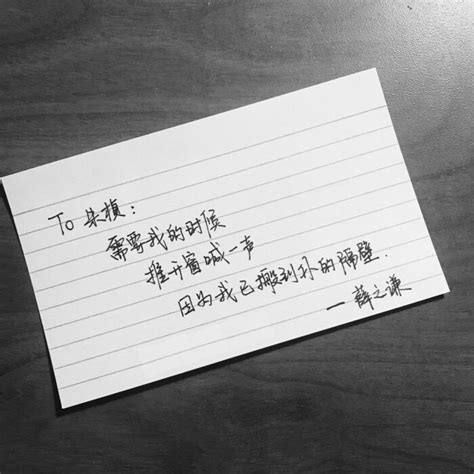 To 朱桢：
需要我的时候
推开窗喊一声
因为我已搬到扑的隔壁.
—薛之谦